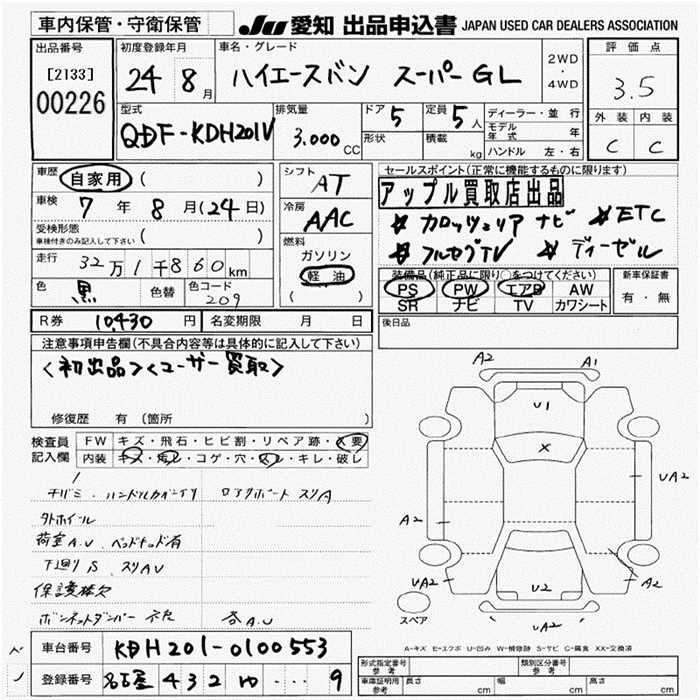 車内保管・守衛保管
JU 愛知 出品申込書 JAPAN USED CAR DEALERS ASSOCIATION
出品番号 [2133] 00226
初度登録年月 24 8月
車名・グレード ハイエースバン スーパーGL
2WD・4WD
評価点 3.5
型式 QDF-KDH201V
排気量 3,000 CC
ドア 5
定員 5人
形状
積載 kg
ディーラー・並行
モデル年式 年
ハンドル 左・右
外装 C
内装 C
車歴 自家用 ( )
車検 7年 8月(24日)
受検形態 ( )
車検付きのみ記入して下さい
走行 32万1千860km
色 黒 色替 色コード 209
シフト AT
冷房 AAC
燃料 ガソリン 軽油 ( )
セールスポイント(正常に機能するものに限ります)
アップル買取店出品
カロッツェリア ナビ ETC
フルセグTV ディーゼル
装備品(純正品に限り○をつけてください)
PS PW エアB AW
SR ナビ TV カワシート
新車保証書 有・無
R券 10,430円 名変期限 月 日
後日品
注意事項申告欄(不具合内容等は具体的に記入して下さい)
<初出品><ユーザー買取>
修復歴 有 (箇所
検査員記入欄
FW キズ・飛石・ヒビ割・リペア跡・X要
内装 キズ・汚レ・コゲ・穴・スレ・キレ・破レ
チバミ、ハンドルカバーデリ ロアサポート スリA
外ホイル
荷室A.U、ベッドキット有
下廻りS、スリAU
保護棒欠
ボンネットダンパー 不良 各A.U
A2 A1
U1
X
UA2
A2
UA2 UA2
U2
UA2
スペア
A-キズ E-エクボ U-凹み W-補修跡 S-サビ C-腐食 XX-交換済
車台番号 KDH201-0100553
登録番号 名古屋 432 ゆ ・・・9
形式指定番号 参考
類別区分番号 参考
車庫証明用 参考 長さ cm 幅 cm 高さ cm